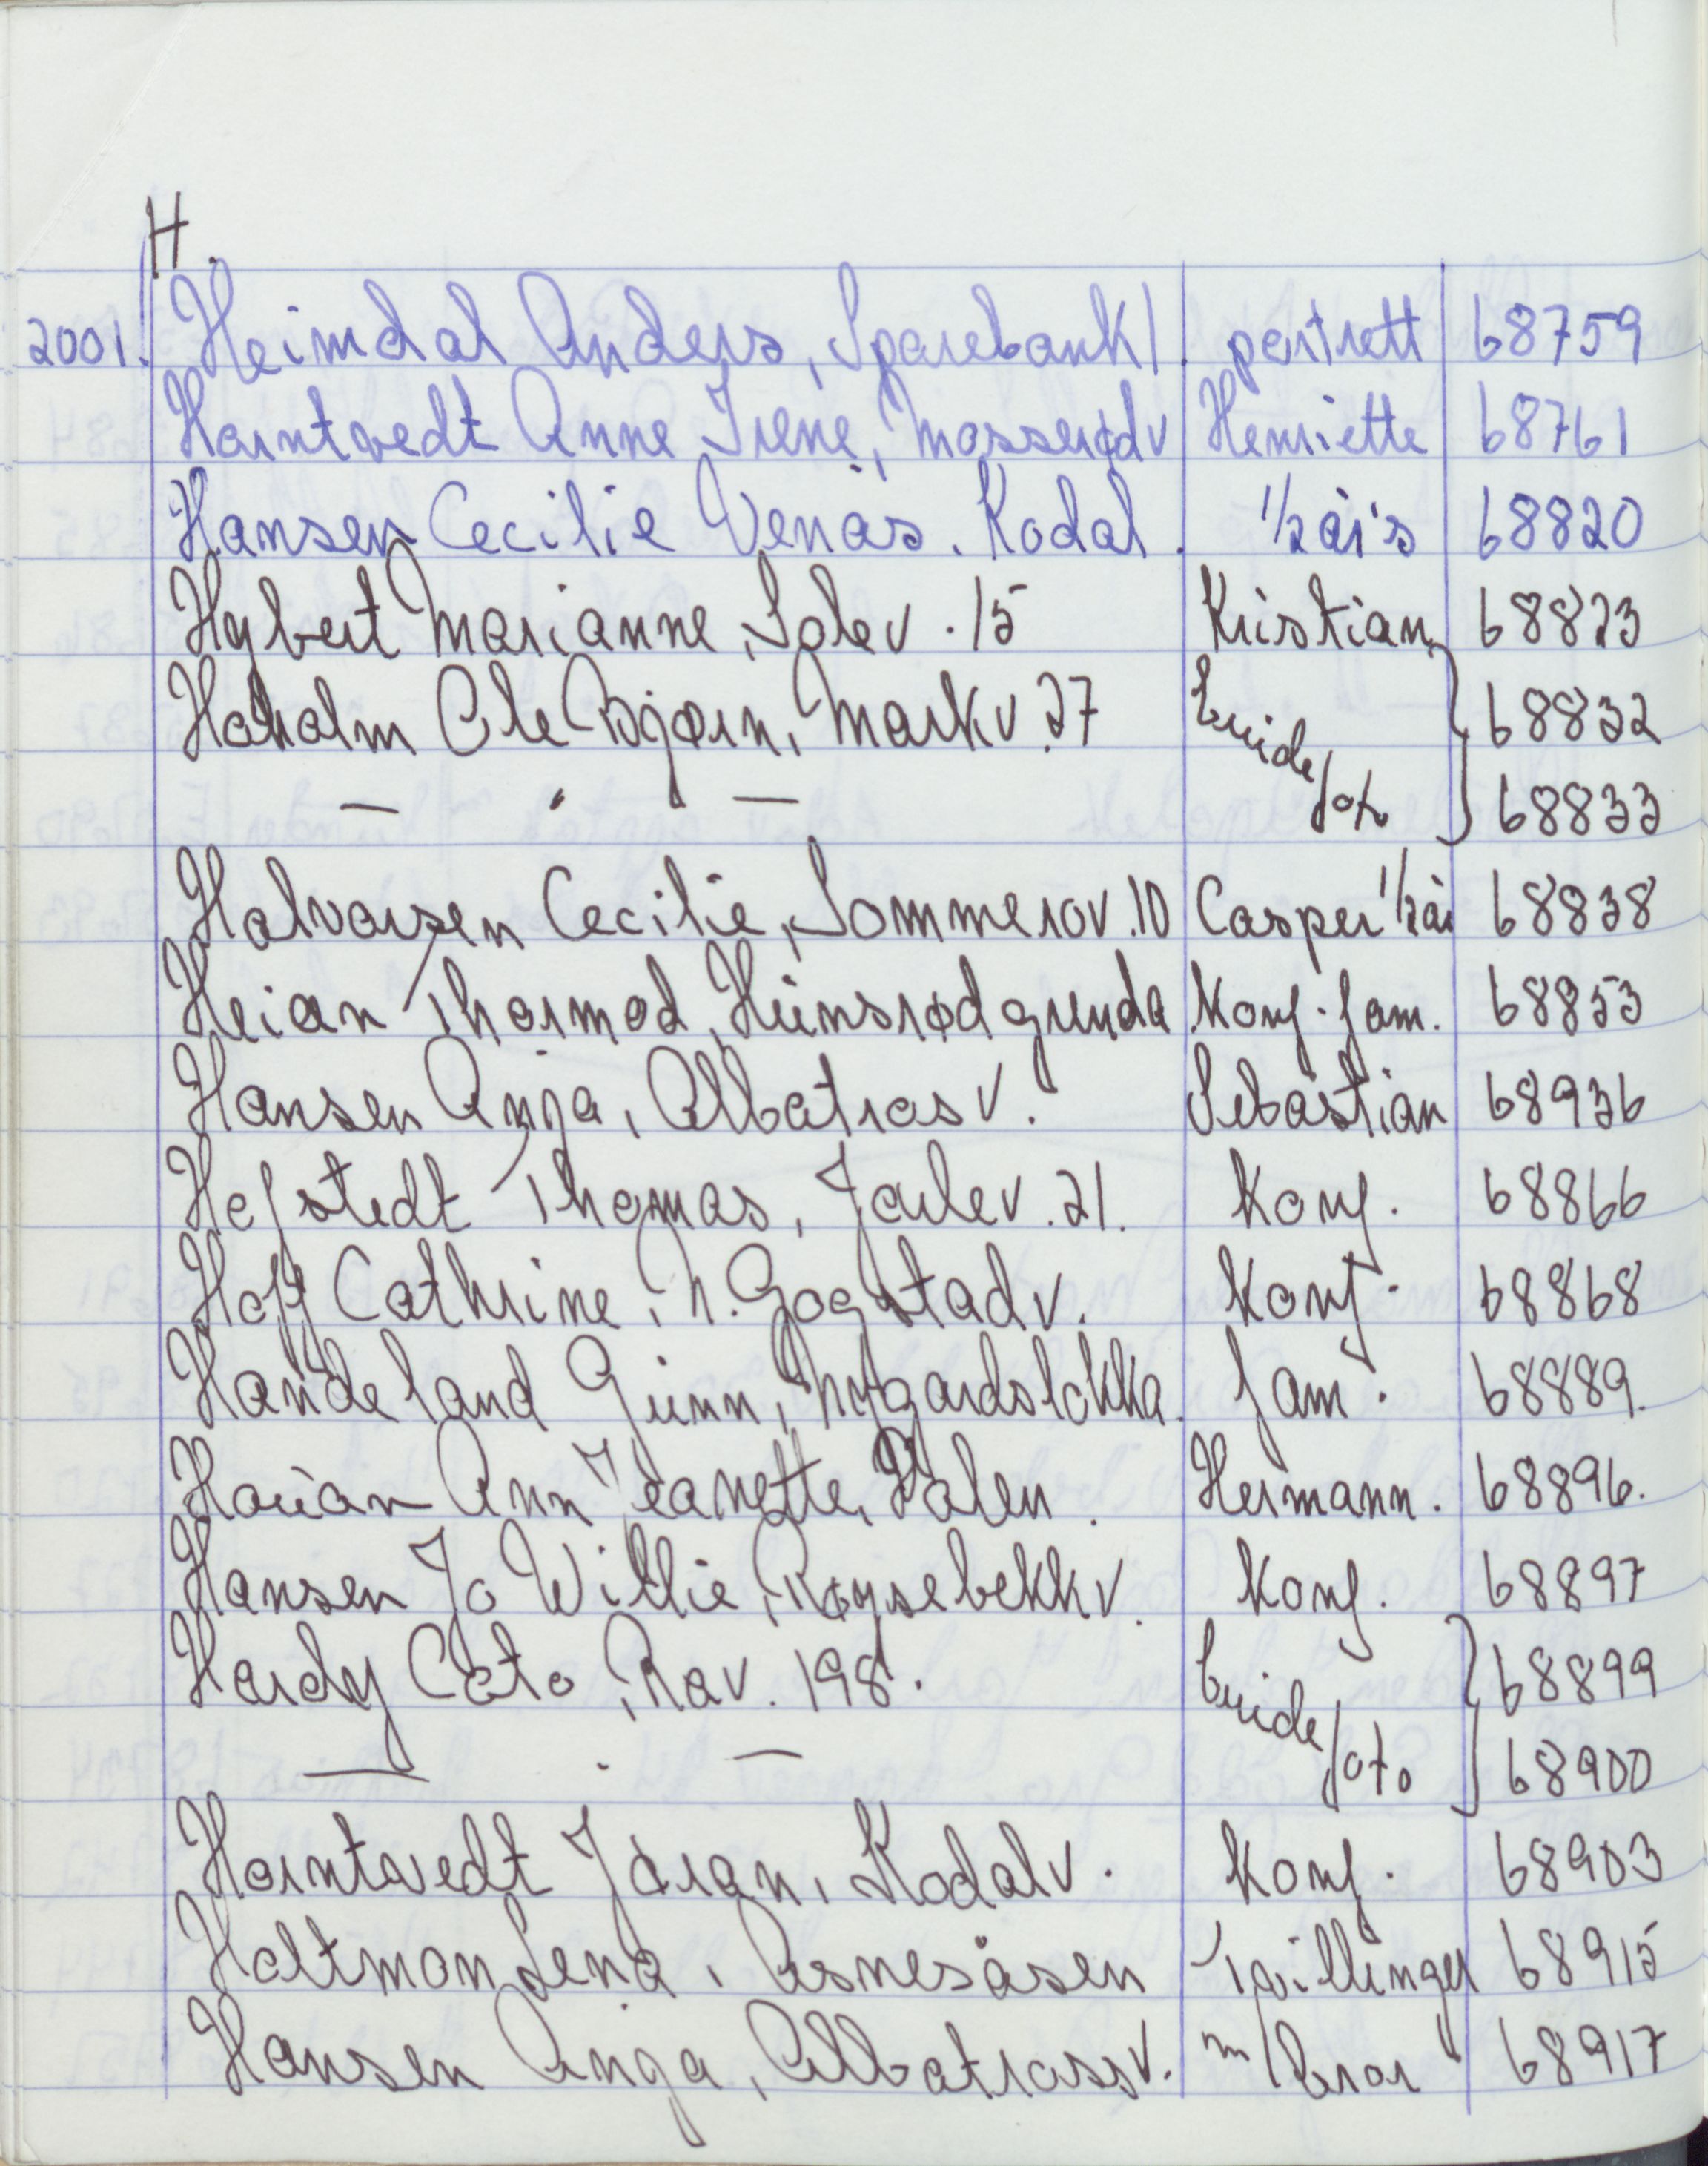 H.
2001. Heimdal Anders, Sparebank1. portrett 68759
Horntvedt Anne Irene, Mosserødv Henriette 68761
Hansen Cecilie Venås. Kodal. 1/2 års 68820
Hybert Marianne, Solev. 15 Kristian 68823
Hoholm Ole Bjørn, Markv. 27 brude 68832
— " — foto 68833
Halvorsen Cecilie, Sommerov. 10 Casper 1/2 år 68838
Heian Thormod, Heinsrødgrenda Konf. fam. 68853
Hansen Anja, Albatrosv. Sebastian 68936
Hofstedt Thomas, Jarlev. 21. Konf. 68866
Hoff Cathrine, N. Gogstadv. Konf. 68868
Handeland Gunn, Nygårdsløkka. fam. 68889.
Ann Jeanette, Valen. Hermann. 68896.
Hansen Jo Willie, Røysebekkv. Konf. 68897
Hardy Cato, Rav. 198. brude 68899
— . — foto 68900
Horntvedt Jøran, Kodalv. Konf. 68903
Holtmon Lena, Asnesåsen Tvillinger 68915
Hansen Anja, Albatrossv. m/bror 68917